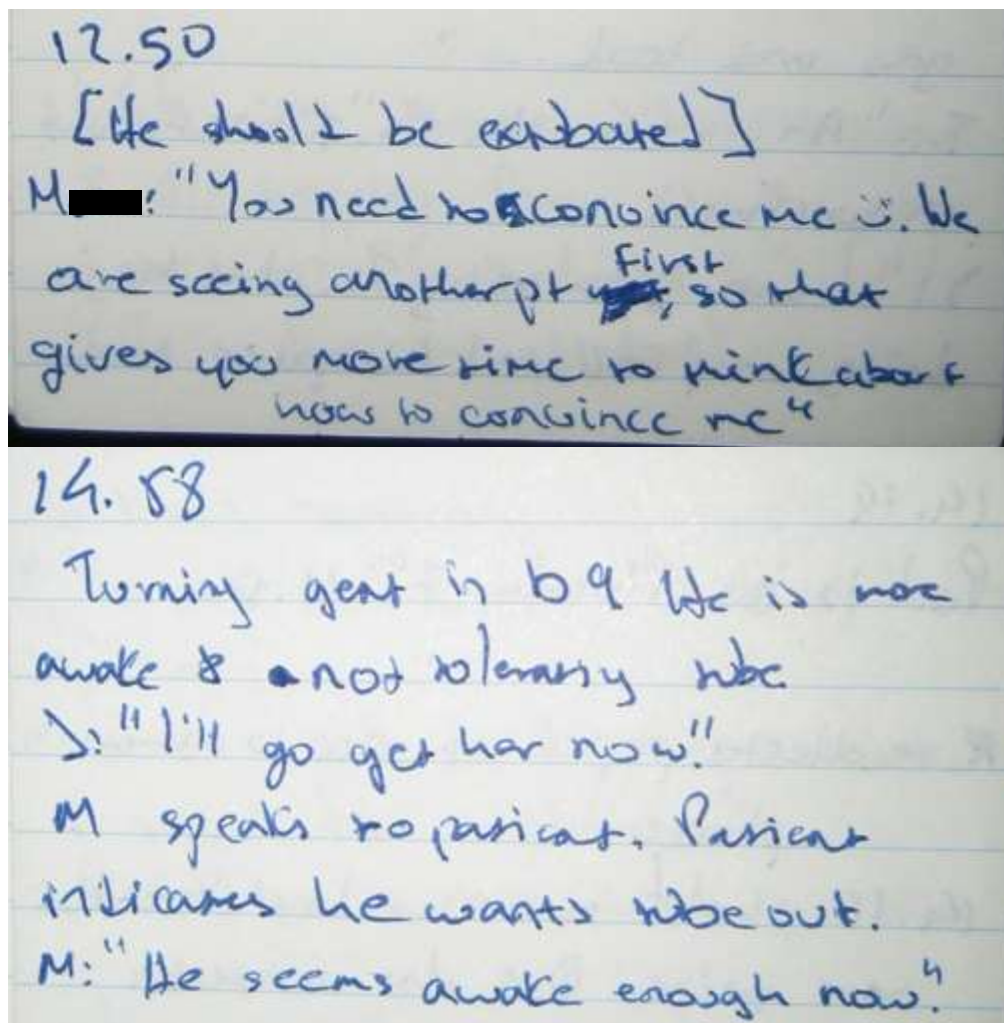 12.50
[He should be extubated]
M : "You need to convince me ü. We
are seeing another pt first, so that
gives you more time to think about
how to convince me"
14.58
Turning gent in b9 He is more
awake & not tolerating tube
J: "I'll go get her now"
M speaks to patient. Patient
indicates he wants tube out.
M: "He seems awake enough now."